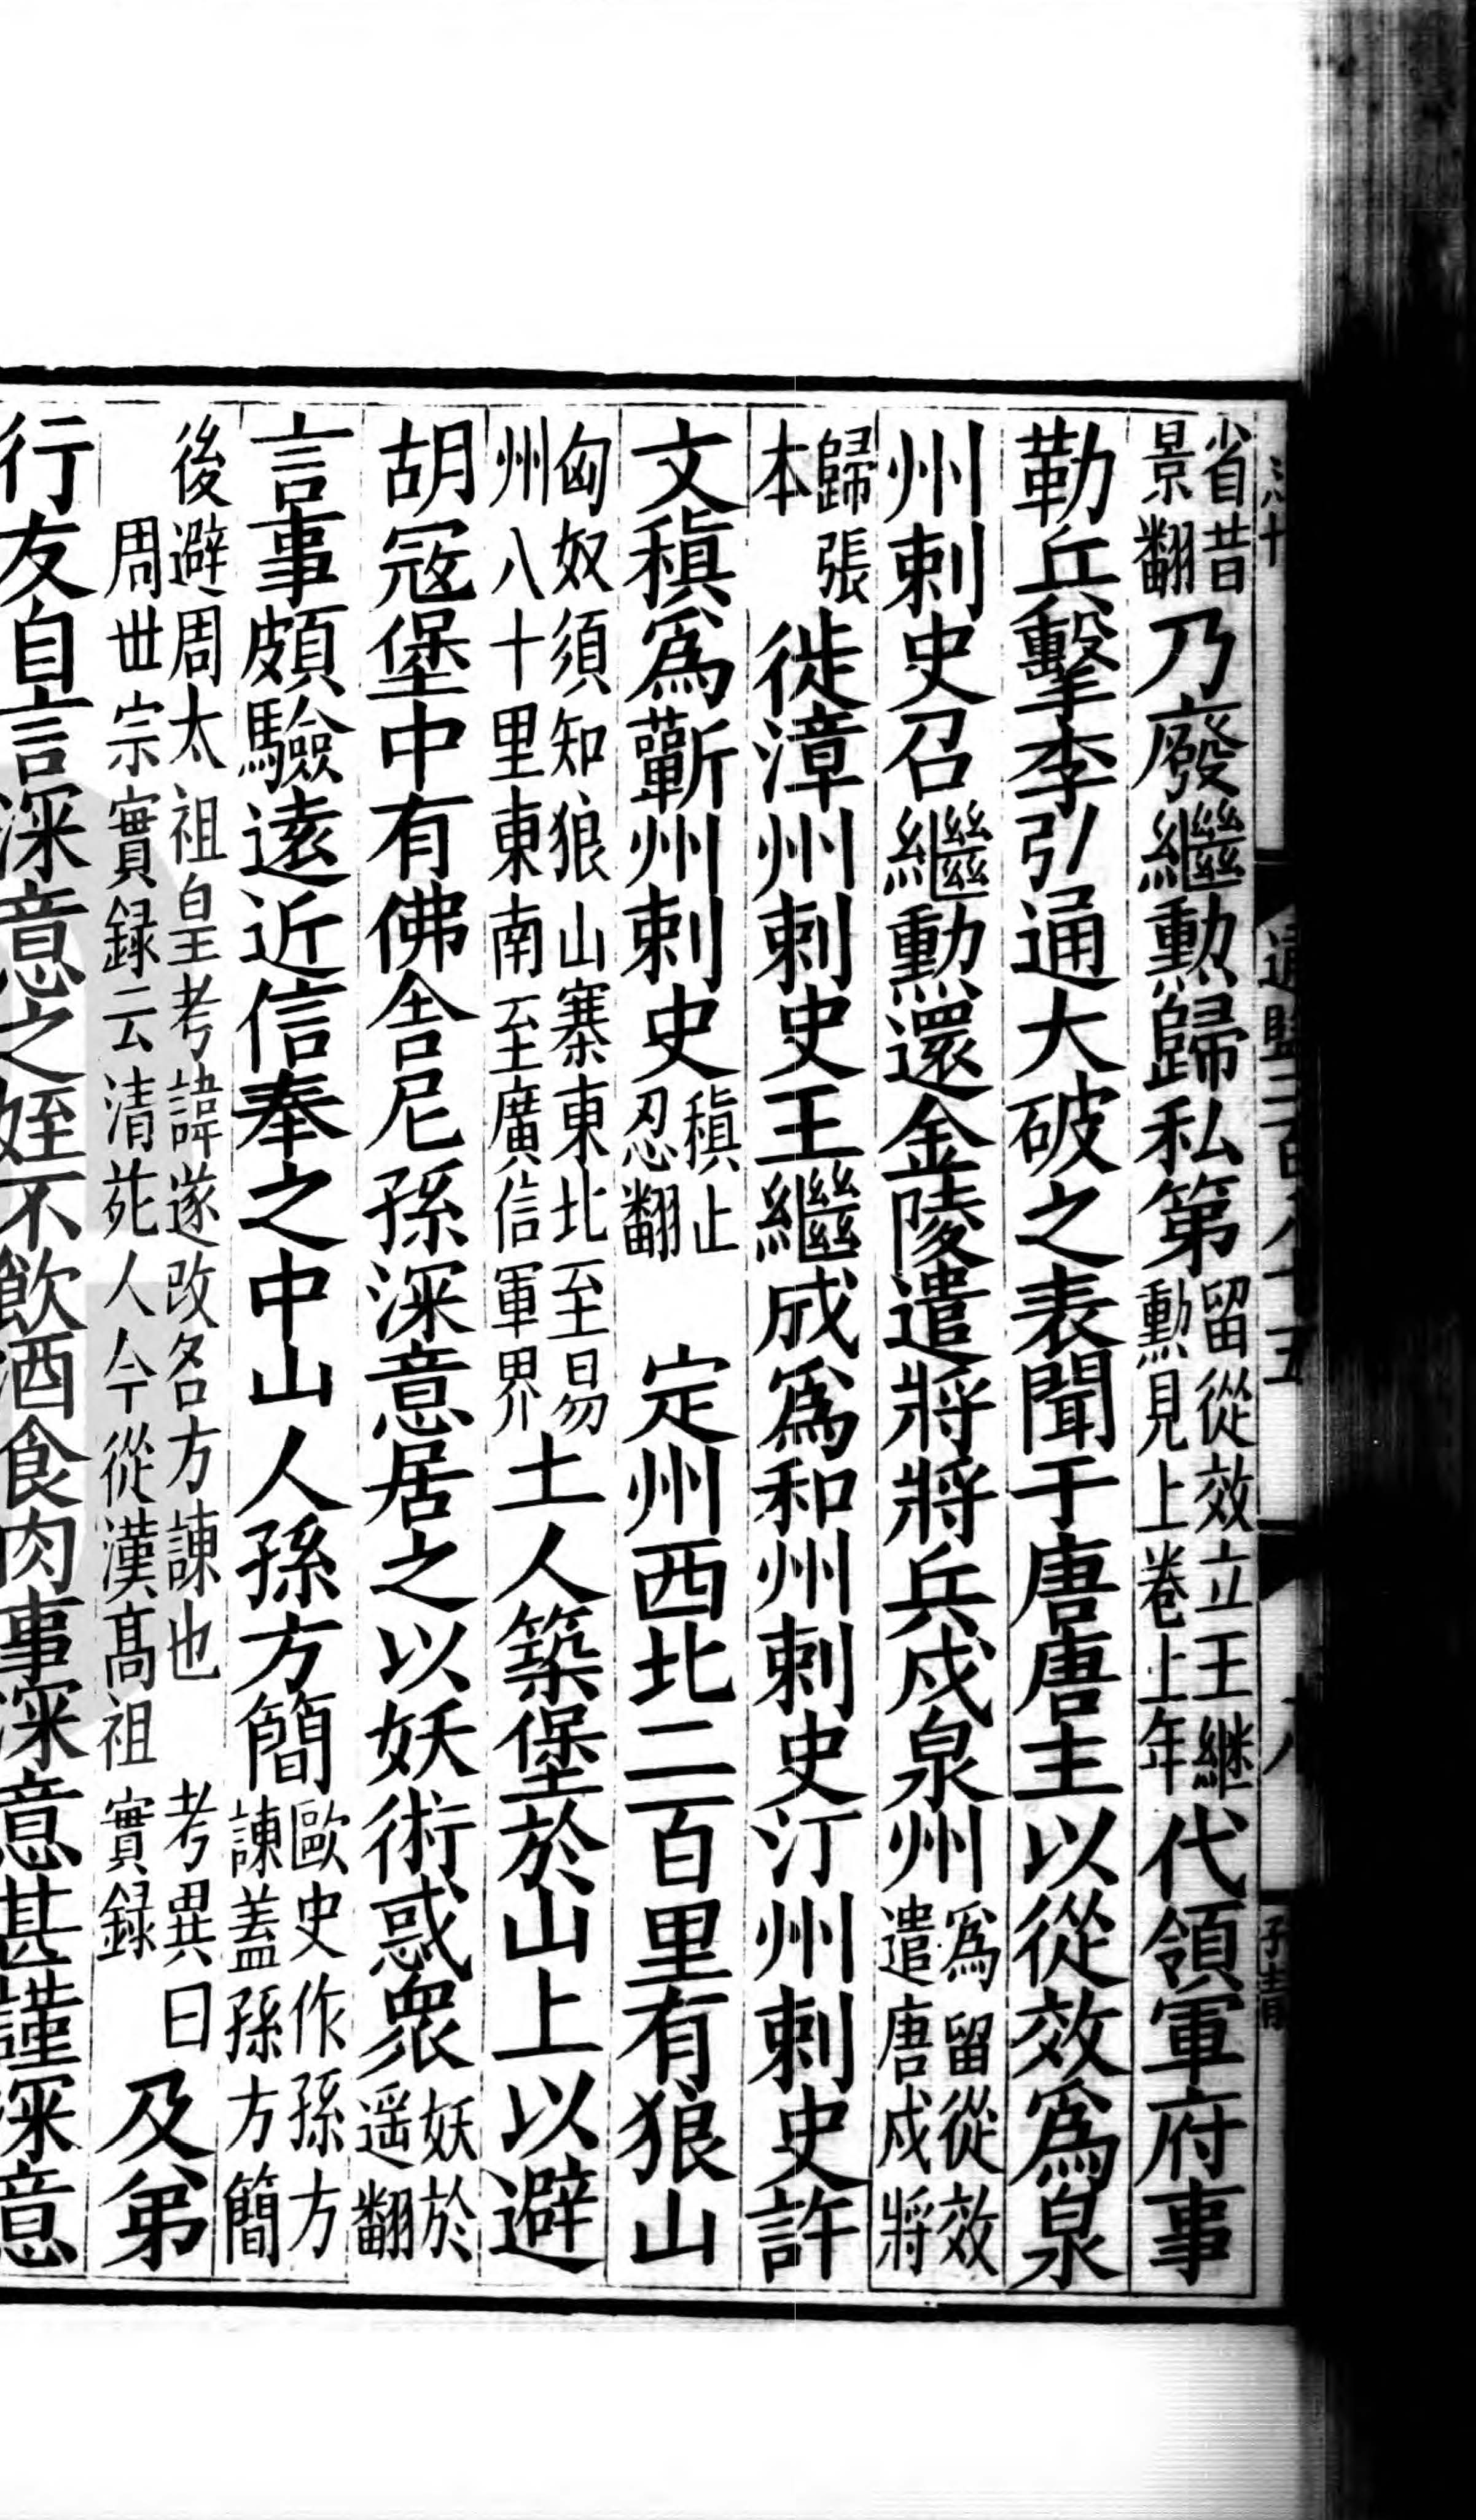 省昔景翻乃廢繼勲歸私第留從效立王継勲見上卷上年代領軍府事
勒兵擊李弘通大破之表聞于唐唐主以從效爲泉
州刺史召繼勲還金陵遣將將兵戍泉州爲留從效遣唐戍將
歸張本徙漳州刺史王繼成爲和州刺史汀州刺史許
文稹爲蘄州刺史稹止忍翻定州西北二百里有狼山
匈奴須知狼山寨東北至易州八十里東南至廣信軍界土人築堡於山上以避
胡冦堡中有佛舍尼孫深意居之以妖術惑衆妖於遥翻
言事頗驗逺近信奉之中山人孫方簡歐史作孫方諫蓋孫方簡
後避周太祖皇考諱遂改名方諫也考異曰周世宗實録云清苑人今從漢髙祖實録及弟
行友自言深意之姪不飲酒食肉事深意甚謹深意